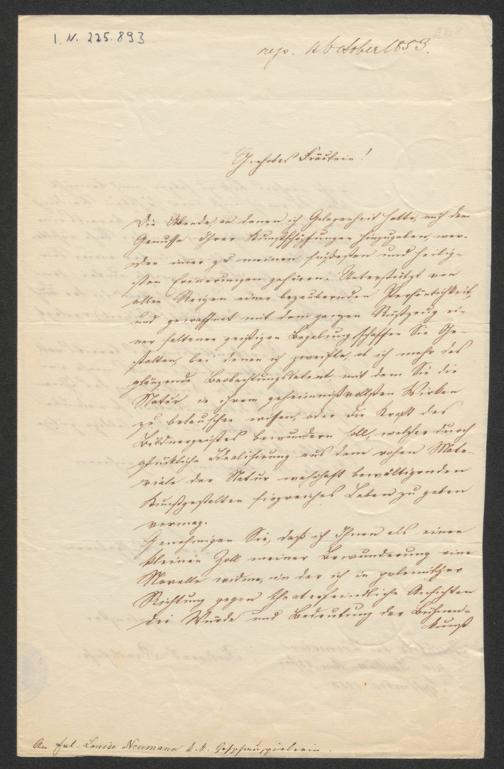 I. N. 225.893
October 1853.
Geehrtes Fräulein!
Die Abende, an denen ich Gelegenheit hatte, mich dem
Genusse Ihrer Kunstschöpfungen hinzugeben, wer-
den immer zu meinen schönsten und heilig-
sten Erinnerungen gehören. Unterstützt von
allen Reizen einer bezaubernden Persönlichkeit,
und gewaffnet mit dem ganzen Rüstzeug ei-
ner seltenen geistigen Begabung schaffen Sie Ge-
stalten, bei denen ich zweifle, ob ich mehr das
glänzende Beobachtungstalent mit dem Sie die
Natur in ihrem geheimnißvollsten Wirken
zu belauschen wissen, oder die Kraft des
Bildnergeistes bewundern soll, welcher durch
glückliche Idealisirung aus dem rohen Mate-
riale der Natur bewältigenden
Kunstgestalten siegreiches Leben zu geben
vermag.
Genehmigen Sie, daß ich Ihnen als einen
kleinen Zoll meiner Bewunderung eine
Novelle widme, in der ich in polemischer
Richtung gegen theaterfeindliche Ansichten
die Würde und Bedeutung der Bühnen-
kunst
An Frl. Louise Neumann k. k. Hofschauspielerin.